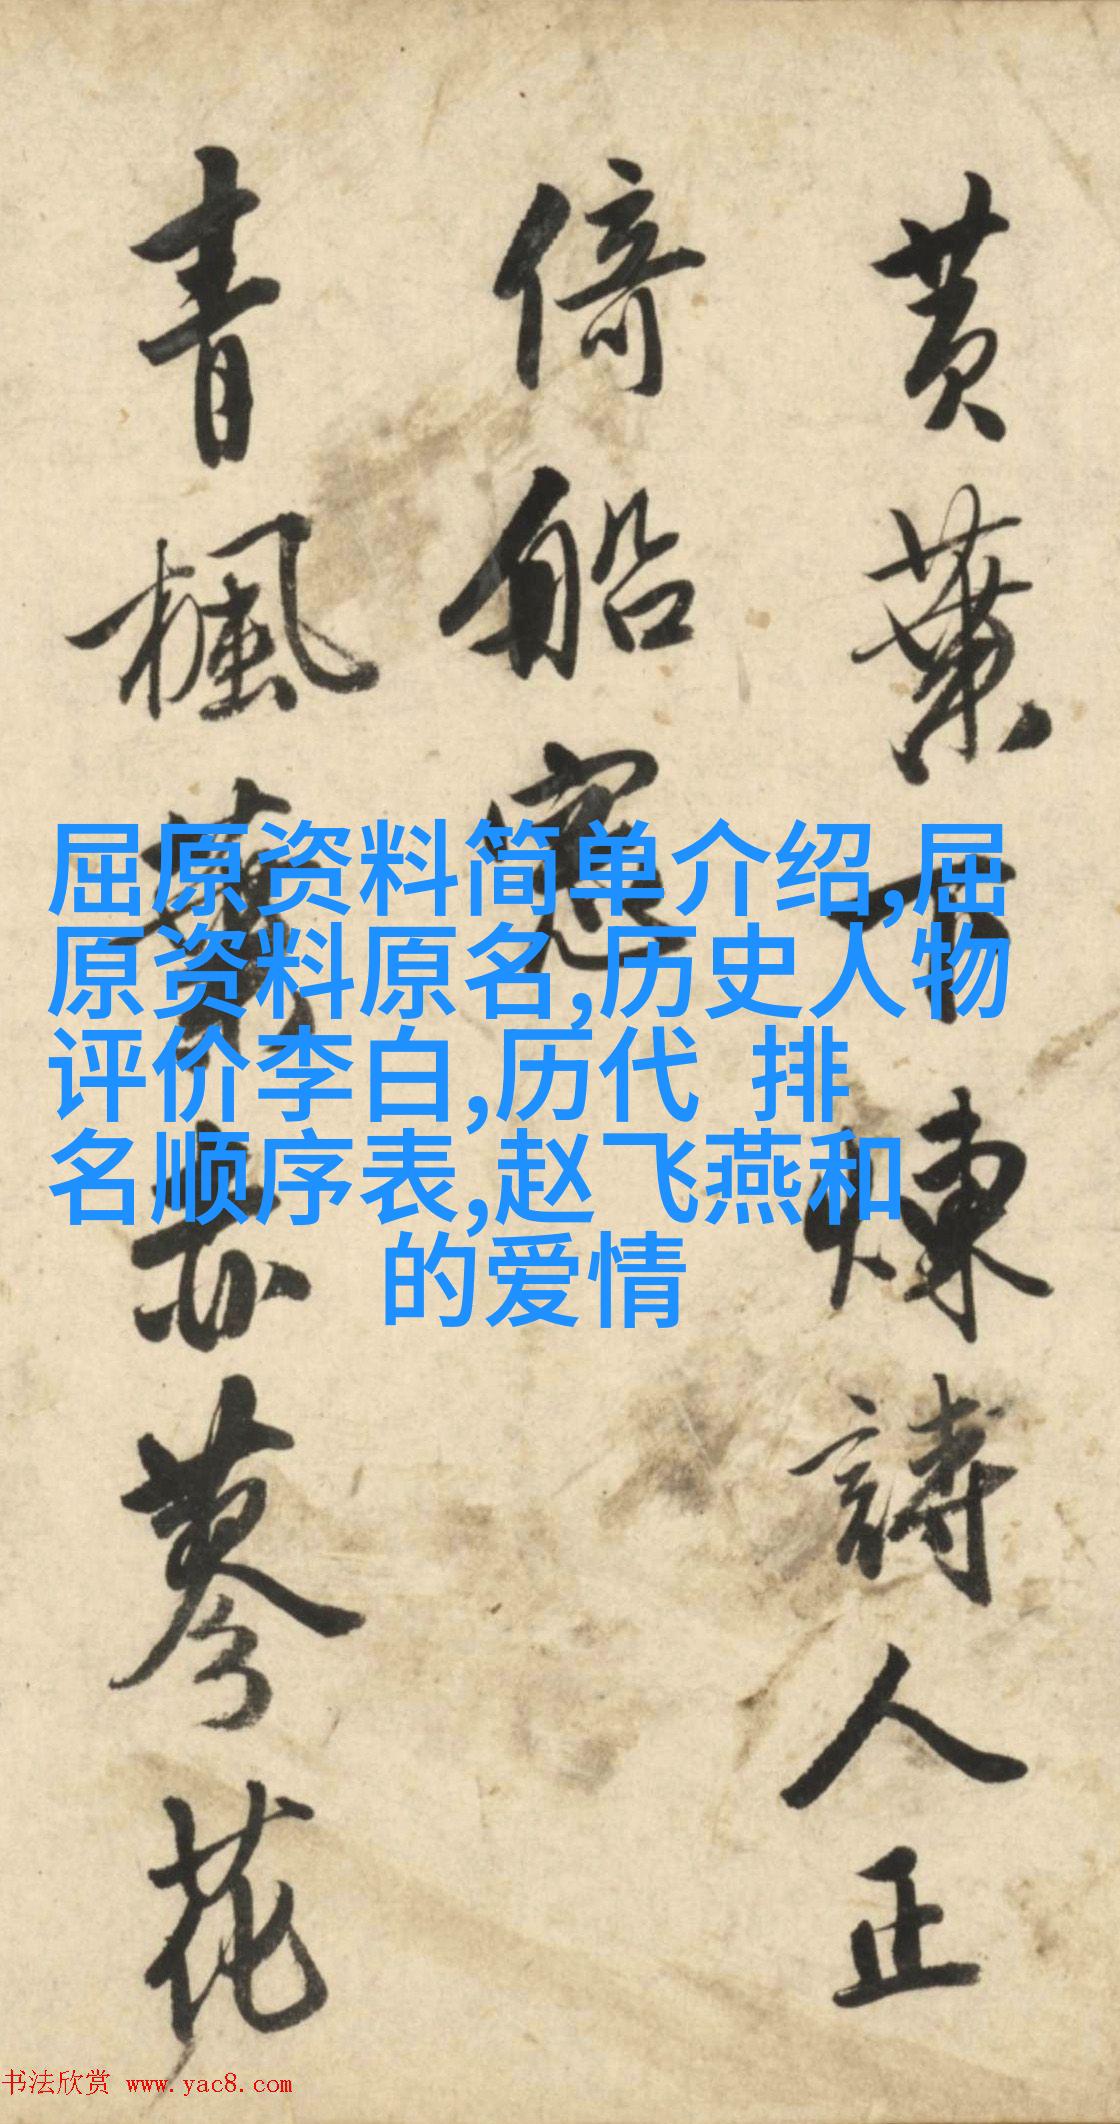 黃葉下煉詩人正
倚船窓
青楓赤蓼花
屈原资料简单介绍,屈
原资料原名,历史人物
评价李白,历代 排
名顺序表,赵飞燕和
的爱情
书法欣赏 www.yac8.com